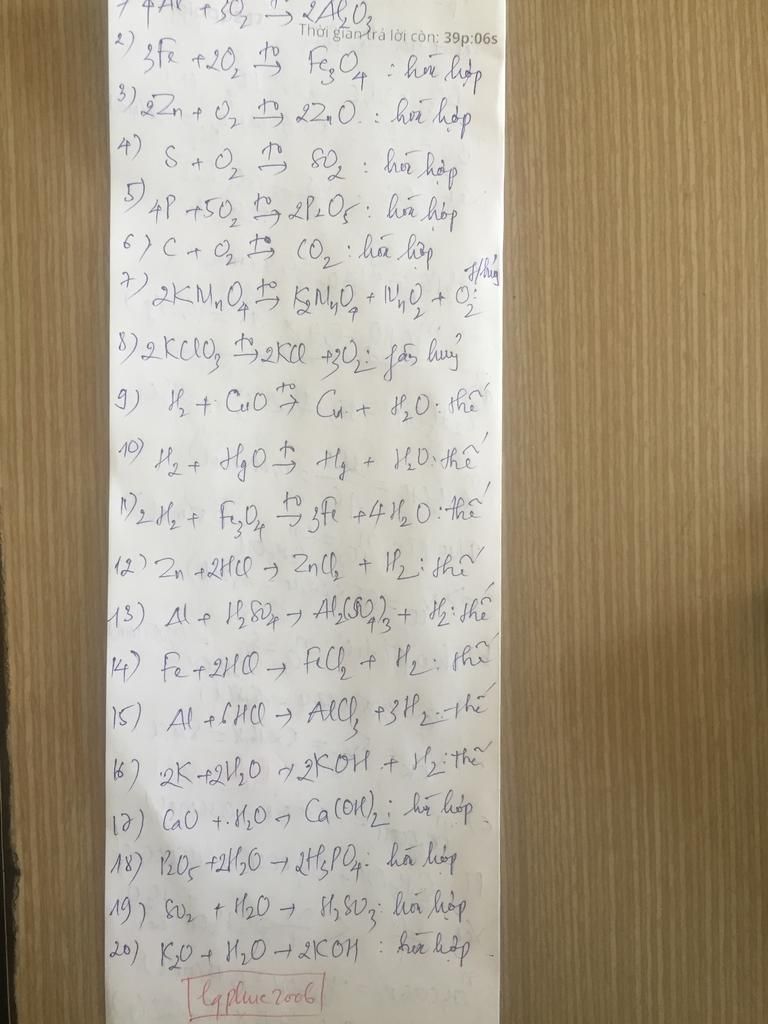 1 4Al + 3O2 t°→ 2Al2O3
Thời gian trả lời còn: 39p:06s
2) 3Fe + 2O2 t°→ Fe3O4 : hóa hợp
3) 2Zn + O2 t°→ 2ZnO : hóa hợp
4) S + O2 t°→ SO2 : hóa hợp
5) 4P + 5O2 t°→ 2P2O5 : hóa hợp
6) C + O2 t°→ CO2 : hóa hợp
7) 2KMnO4 t°→ K2MnO4 + MnO2 + O2 :
8) 2KClO3 t°→ 2KCl + 3O2 : phân huỷ
9) H2 + CuO t°→ Cu + H2O : thế
10) H2 + HgO t°→ Hg + H2O : thế
11) 2H2 + Fe3O4 t°→ 3Fe + 4H2O : thế
12) Zn + 2HCl → ZnCl2 + H2 : thế
13) Al + H2SO4 → Al2(SO4)3 + H2 : thế
14) Fe + 2HCl → FeCl2 + H2 : thế
15) Al + 6HCl → AlCl3 + 3H2 : thế
16) 2K + 2H2O → 2KOH + H2 : thế
17) CaO + H2O → Ca(OH)2 : hóa hợp
18) P2O5 + 2H2O → 2H3PO4 : hóa hợp
19) SO2 + H2O → H2SO3 : hóa hợp
20) K2O + H2O → 2KOH : hóa hợp
lqphuc2006